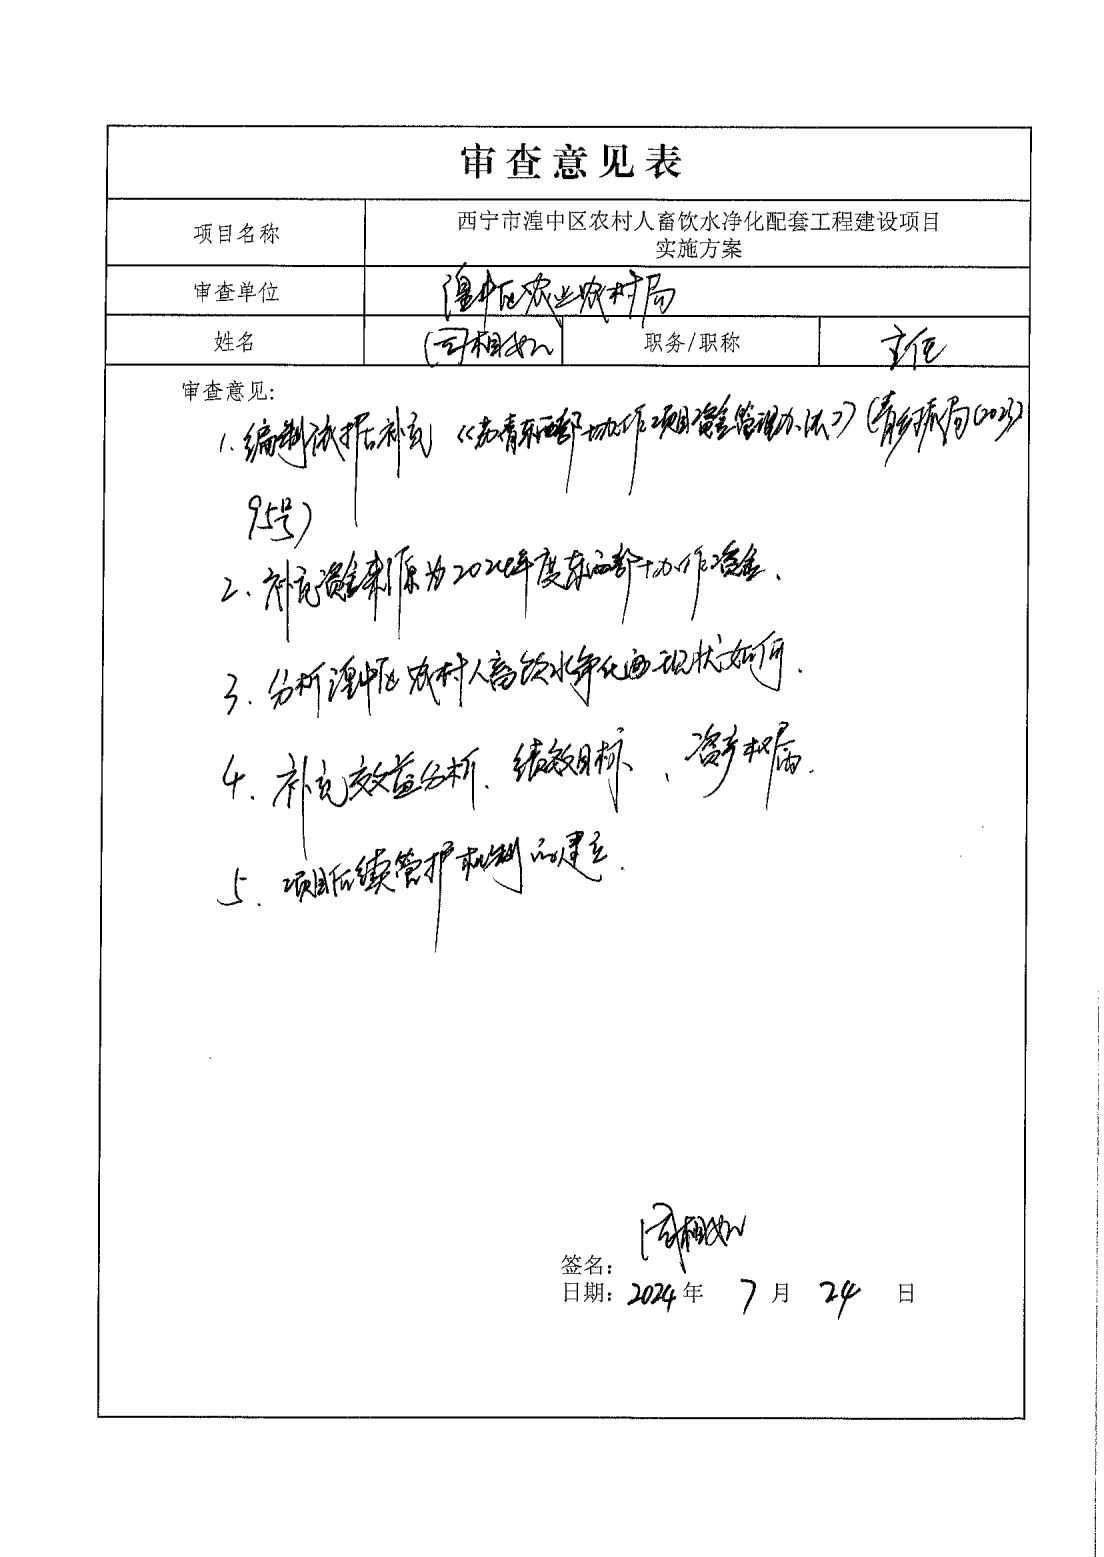 审查意见表
项目名称
西宁市湟中区农村人畜饮水净化配套工程建设项目
实施方案
审查单位
湟中区农业农村局
姓名
相如
职务/职称
主任
审查意见:
1. 编制依据补充《苏青东西部协作项目资金管理办法》(青乡振局(2023)
95号)
2. 补充资金来源为2024年度东西部协作资金.
3. 分析湟中区农村人畜饮水净化 现状如何.
4. 补充效益分析、绩效目标、资产权属.
5. 项目后续管护机制的建立.
相如
签名:
日期: 2024 年 7 月 24 日